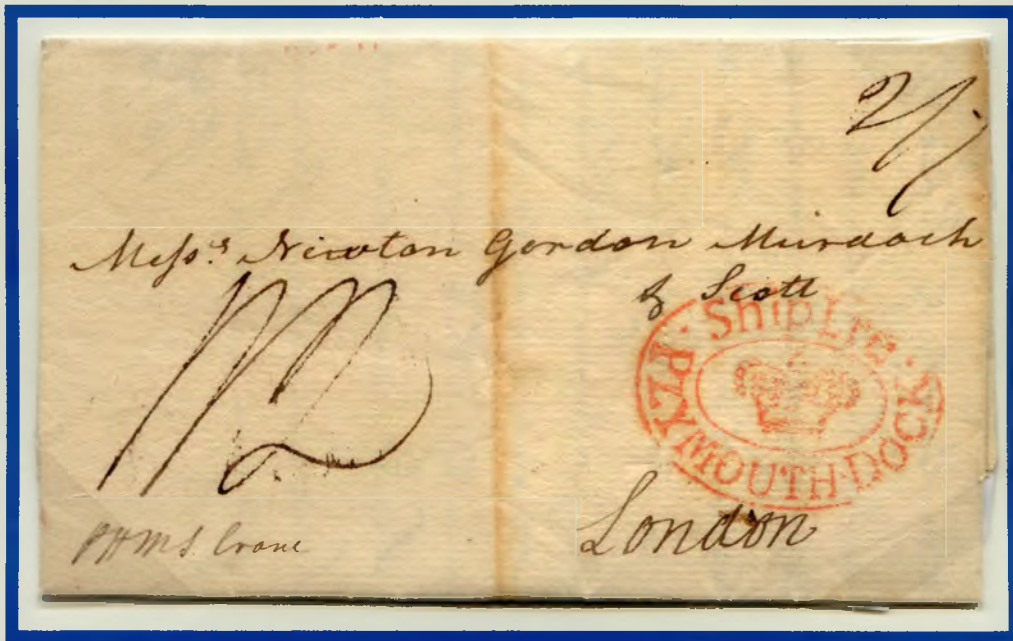 2/
Mess.rs Newton Gordon Murdoch
& Scott
Ship Lre
PLYMOUTH·DOCK
London
P HMS. Crane